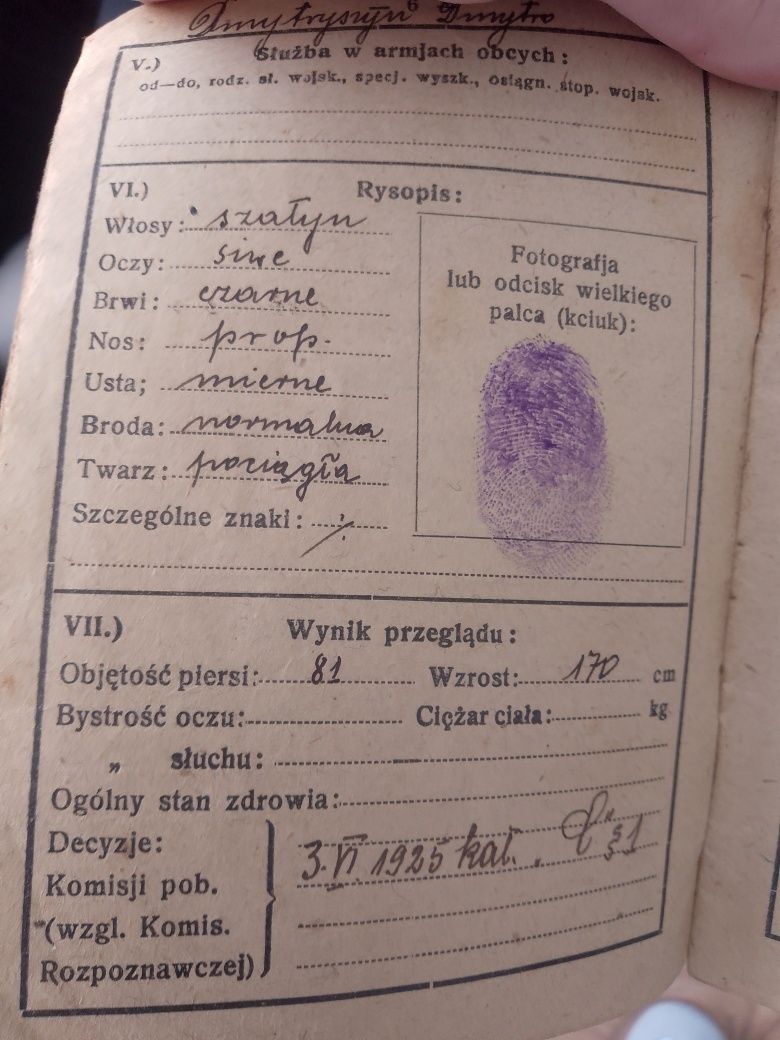 Dmytryszyn Dmytro
6
V.) Służba w armjach obcych:
od—do, rodz. sł. wojsk., specj. wyszk., osiągn. stop. wojsk.
VI.) Rysopis:
Włosy: szatyn
Oczy: siwe
Brwi: czarne
Nos: prop.
Usta; mierne
Broda: normalna
Twarz: pociągła
Szczególne znaki: ./.
Fotografja
lub odcisk wielkiego
palca (kciuk):
VII.) Wynik przeglądu:
Objętość piersi: 81 Wzrost: 170 cm
Bystrość oczu: Ciężar ciała: kg
„ słuchu:
Ogólny stan zdrowia:
Decyzje:
Komisji pob.
(wzgl. Komis.
Rozpoznawczej)
3.VI 1925 kat. § 1